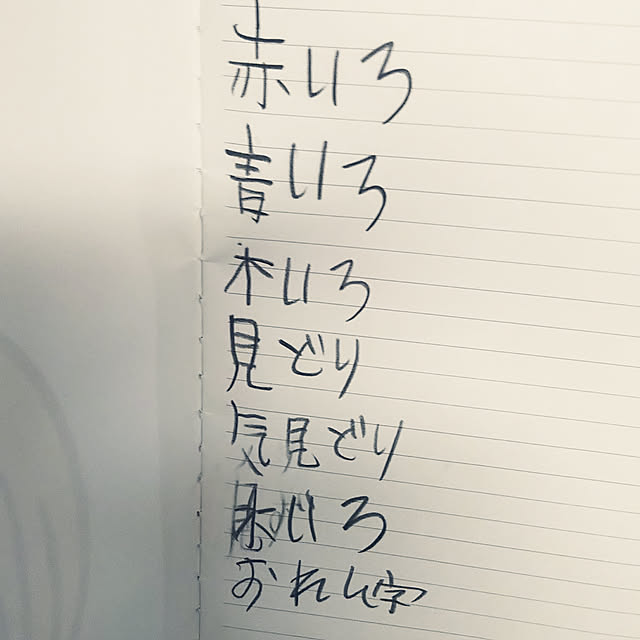 赤いろ
青いろ
木いろ
見どり
気見どり
水いろ
おれん字